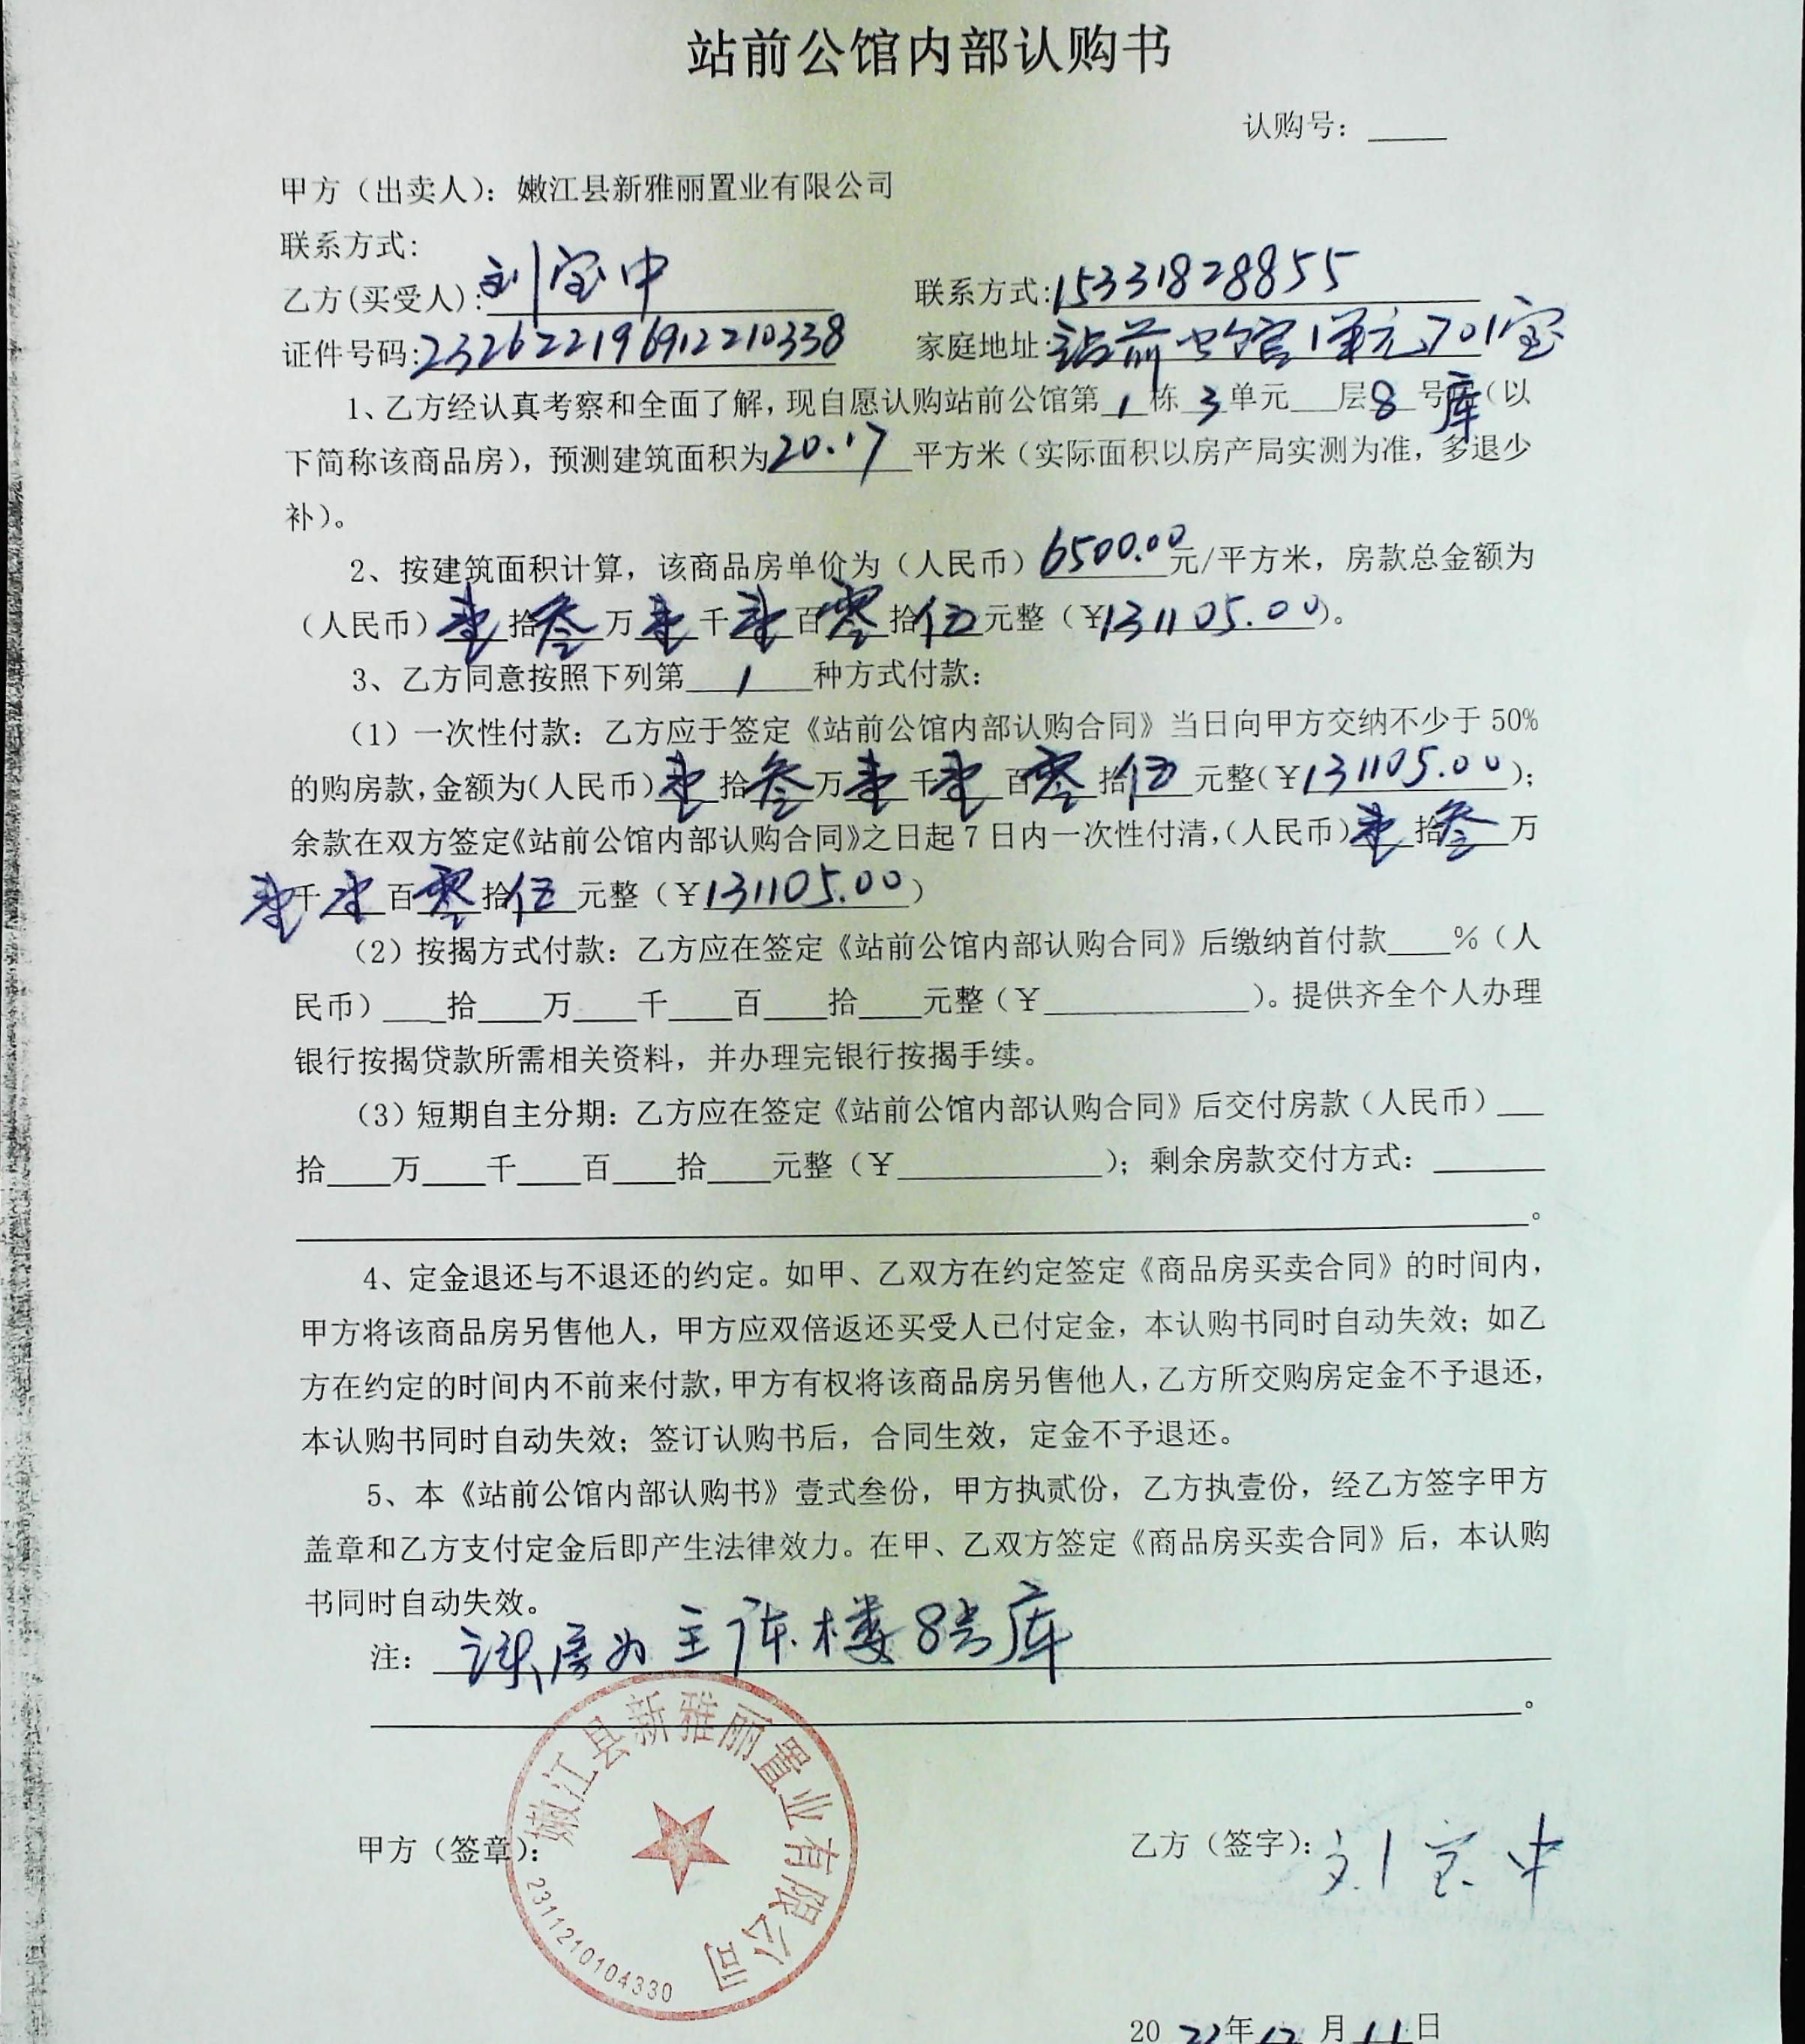 站前公馆内部认购书
认购号：____
甲方（出卖人）：嫩江县新雅丽置业有限公司
联系方式：
乙方(买受人)：刘宝中 联系方式：15331828855
证件号码：232622196912210338 家庭地址：站前公馆1单元701室
1、乙方经认真考察和全面了解，现自愿认购站前公馆第1栋3单元___层8号库（以
下简称该商品房），预测建筑面积为20.17平方米（实际面积以房产局实测为准，多退少
补）。
2、按建筑面积计算，该商品房单价为（人民币）6500.00元/平方米，房款总金额为
（人民币）壹拾叁万壹千壹百零拾伍元整（¥131105.00）。
3、乙方同意按照下列第1种方式付款：
（1）一次性付款：乙方应于签定《站前公馆内部认购合同》当日向甲方交纳不少于50%
的购房款，金额为（人民币）壹拾叁万壹千壹百零拾伍元整（¥131105.00）；
余款在双方签定《站前公馆内部认购合同》之日起7日内一次性付清，（人民币）壹拾叁万
壹千壹百零拾伍元整（¥131105.00）
（2）按揭方式付款：乙方应在签定《站前公馆内部认购合同》后缴纳首付款____%（人
民币）____拾____万____千____百____拾____元整（¥____________）。提供齐全个人办理
银行按揭贷款所需相关资料，并办理完银行按揭手续。
（3）短期自主分期：乙方应在签定《站前公馆内部认购合同》后交付房款（人民币）___
拾____万____千____百____拾____元整（¥____________）；剩余房款交付方式：_______
。
4、定金退还与不退还的约定。如甲、乙双方在约定签定《商品房买卖合同》的时间内，
甲方将该商品房另售他人，甲方应双倍返还买受人已付定金，本认购书同时自动失效；如乙
方在约定的时间内不前来付款，甲方有权将该商品房另售他人，乙方所交购房定金不予退还，
本认购书同时自动失效；签订认购书后，合同生效，定金不予退还。
5、本《站前公馆内部认购书》壹式叁份，甲方执贰份，乙方执壹份，经乙方签字甲方
盖章和乙方支付定金后即产生法律效力。在甲、乙双方签定《商品房买卖合同》后，本认购
书同时自动失效。
注：该房为主体楼8号库
。
嫩江县新雅丽置业有限公司
甲方（签章）： 乙方（签字）：刘宝中
2311210104330
20 年12月11日